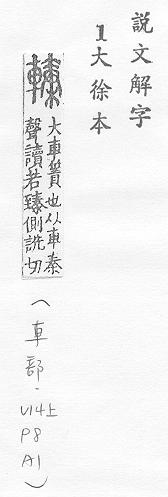 說文解字
1大徐本
轃
大車簀也从車秦
聲讀若臻側詵切
(車部.V14上
P8
A1)